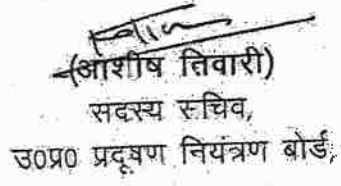 (आशीष तिवारी)
सदस्य सचिव,
उ०प्र० प्रदूषण नियंत्रण बोर्ड,